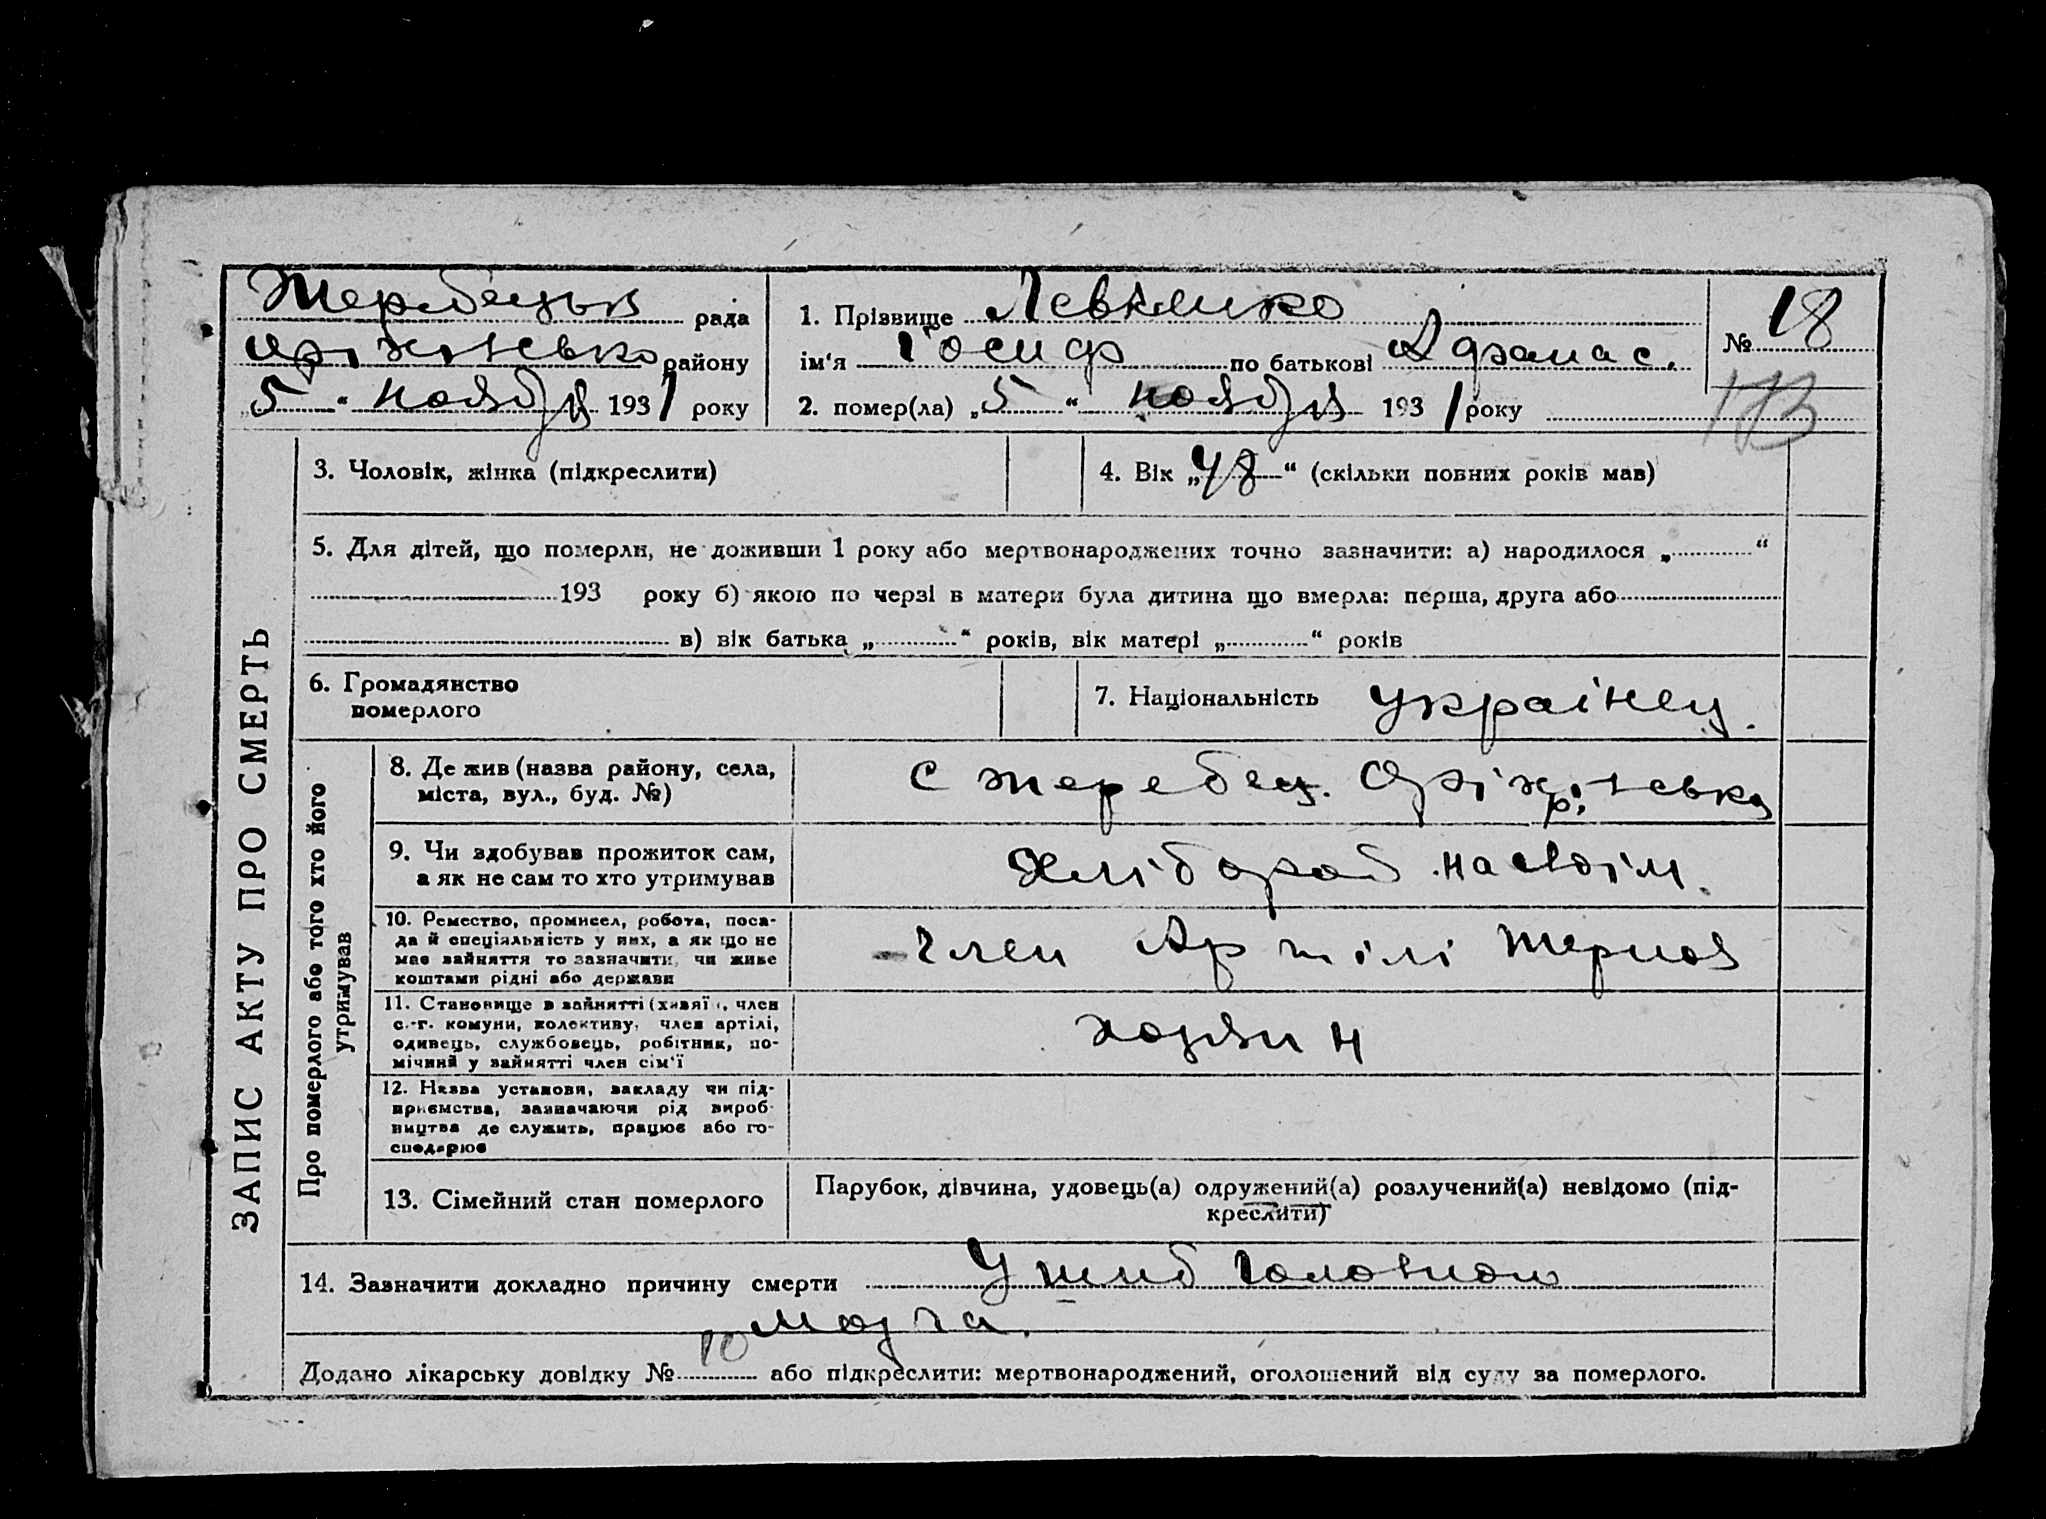 Жеребецька рада
Оріхівсько району
„5“ ноября 1931 року
1. Прізвище Левченко
ім‘я Іосиф по батькові Афанас.
2. помер(ла) „5“ ноября 1931 року
№ 18
173
ЗАПИС АКТУ ПРО СМЕРТЬ
3. Чоловік, жінка (підкреслити)
4. Вік „48“ (скільки повних років мав)
5. Для дітей, що померли, не доживши 1 року або мертвонароджених точно зазначити: а) народилося „ “
193 року б) якою по черзі в матери була дитина що вмерла: перша, друга або
в) вік батька „ “ років, вік матері „ “ років
6. Громадянство
померлого
7. Національність українец.
Про померлого або того хто його
утримував
8. Де жив (назва району, села,
міста, вул., буд. №)
с Жеребец. Оріхівська р.
9. Чи здобував прожиток сам,
а як не сам то хто утримував
Хлібороб на своім.
10. Ремество, промисел, робота, поса-
да й спеціяльність у них, а як що не
має зайняття то зазначити, чи живе
коштами рідні або держави
Член Артілі
11. Становище в зайнятті (хазяїн, член
с.-г. комуни, колективу, член артілі,
одивець, службовець, робітник, по-
мічний у зайнятті член сім‘ї
хозяин
12. Назва установи, закладу чи під-
приємства, зазначаючи рід вироб-
ництва де служить, працює або го-
сподарює
13. Сімейний стан померлого
Парубок, дівчина, удовець(а) одружений(а) розлучений(а) невідомо (під-
креслити)
14. Зазначити докладно причину смерти Ушиб головного
мозга.
Додано лікарську довідку № 10 або підкреслити: мертвонароджений, оголошений від суду за померлого.